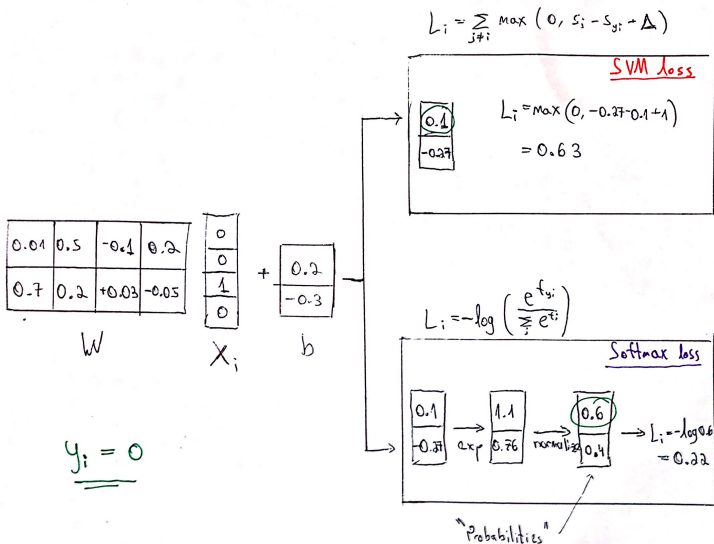 L_i = Σ_{j≠i} max (0, s_i - s_{y_i} + Δ)
SVM loss
0.1
-0.27
L_i = max (0, -0.27-0.1+1)
= 0.63
0.01 0.5 -0.1 0.2
0.7 0.2 +0.03 -0.05
W
0
0
1
0
X_i
+
0.2
-0.3
b
L_i = -log (e^{f_{y_i}} / Σ_j e^{f_i})
Softmax loss
0.1
-0.27
exp
1.1
0.76
normalize
0.6
0.4
L_i = -log 0.6
= 0.22
"Probabilities"
y_i = 0